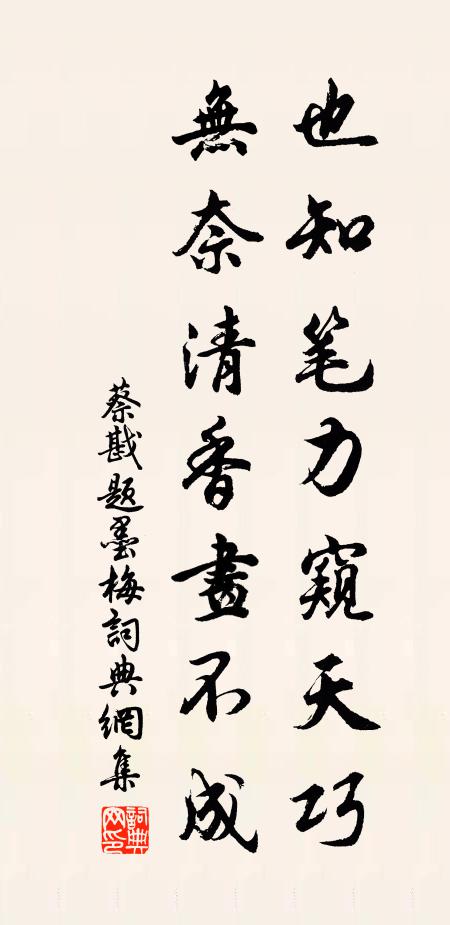 也知笔力窺天巧
無奈清香畫不成
蔡戡题墨梅詞典網集
詞典网印